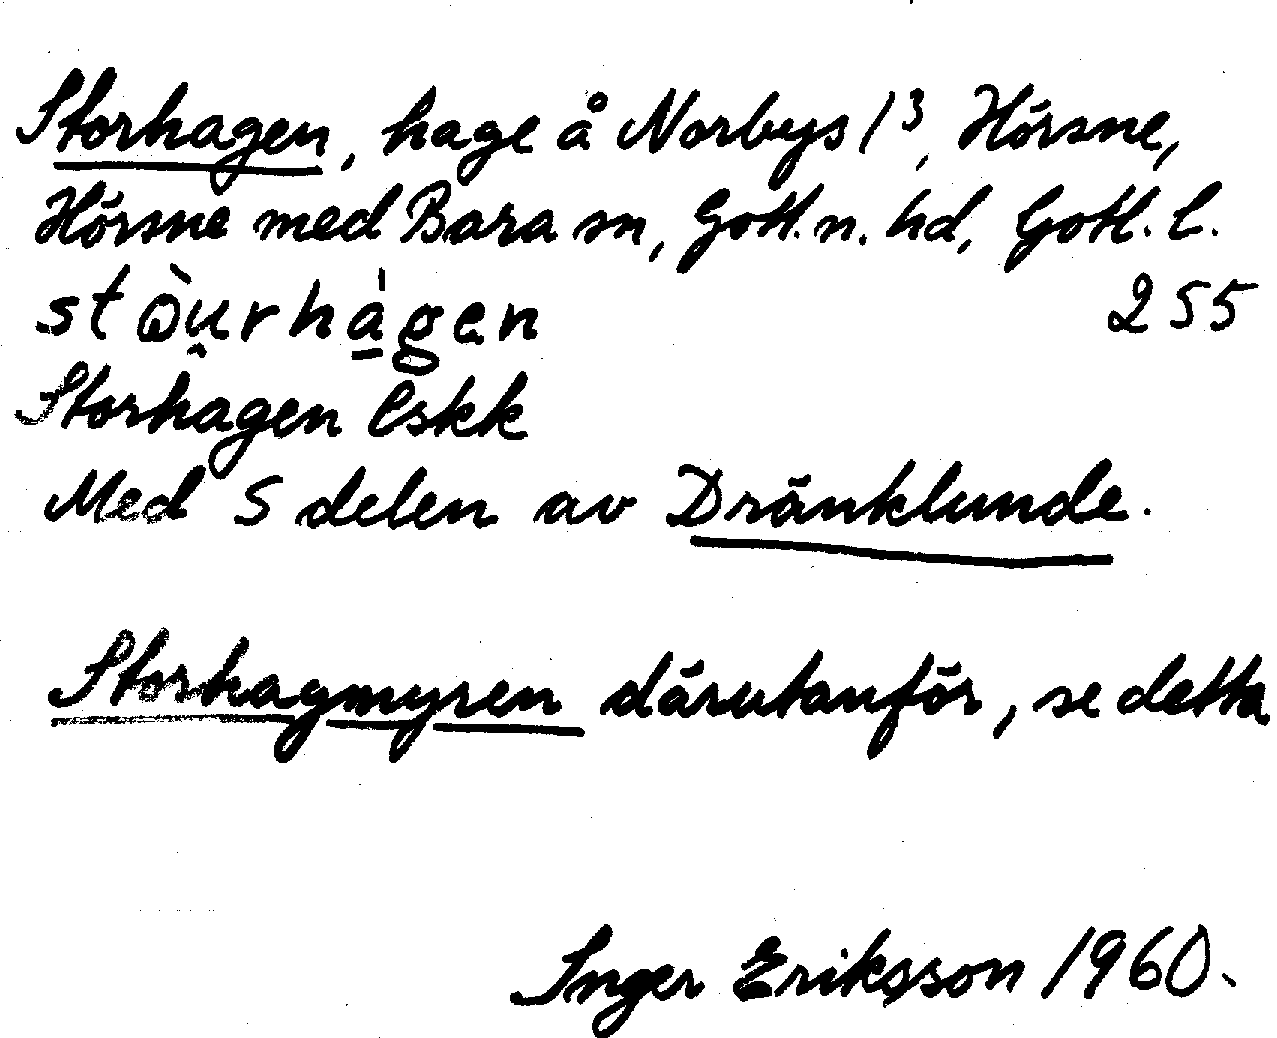 Storhagen, hage å Norbys 1³, Hörsne,
Hörsne med Bara sn, Gotl. n. hd, Gotl. l.
stòu̯rhàgen 255
Storhagen Eskk
Med S delen av Dränklunde.
Storhagmyren därutanför, se detta
Inger Eriksson 1960.